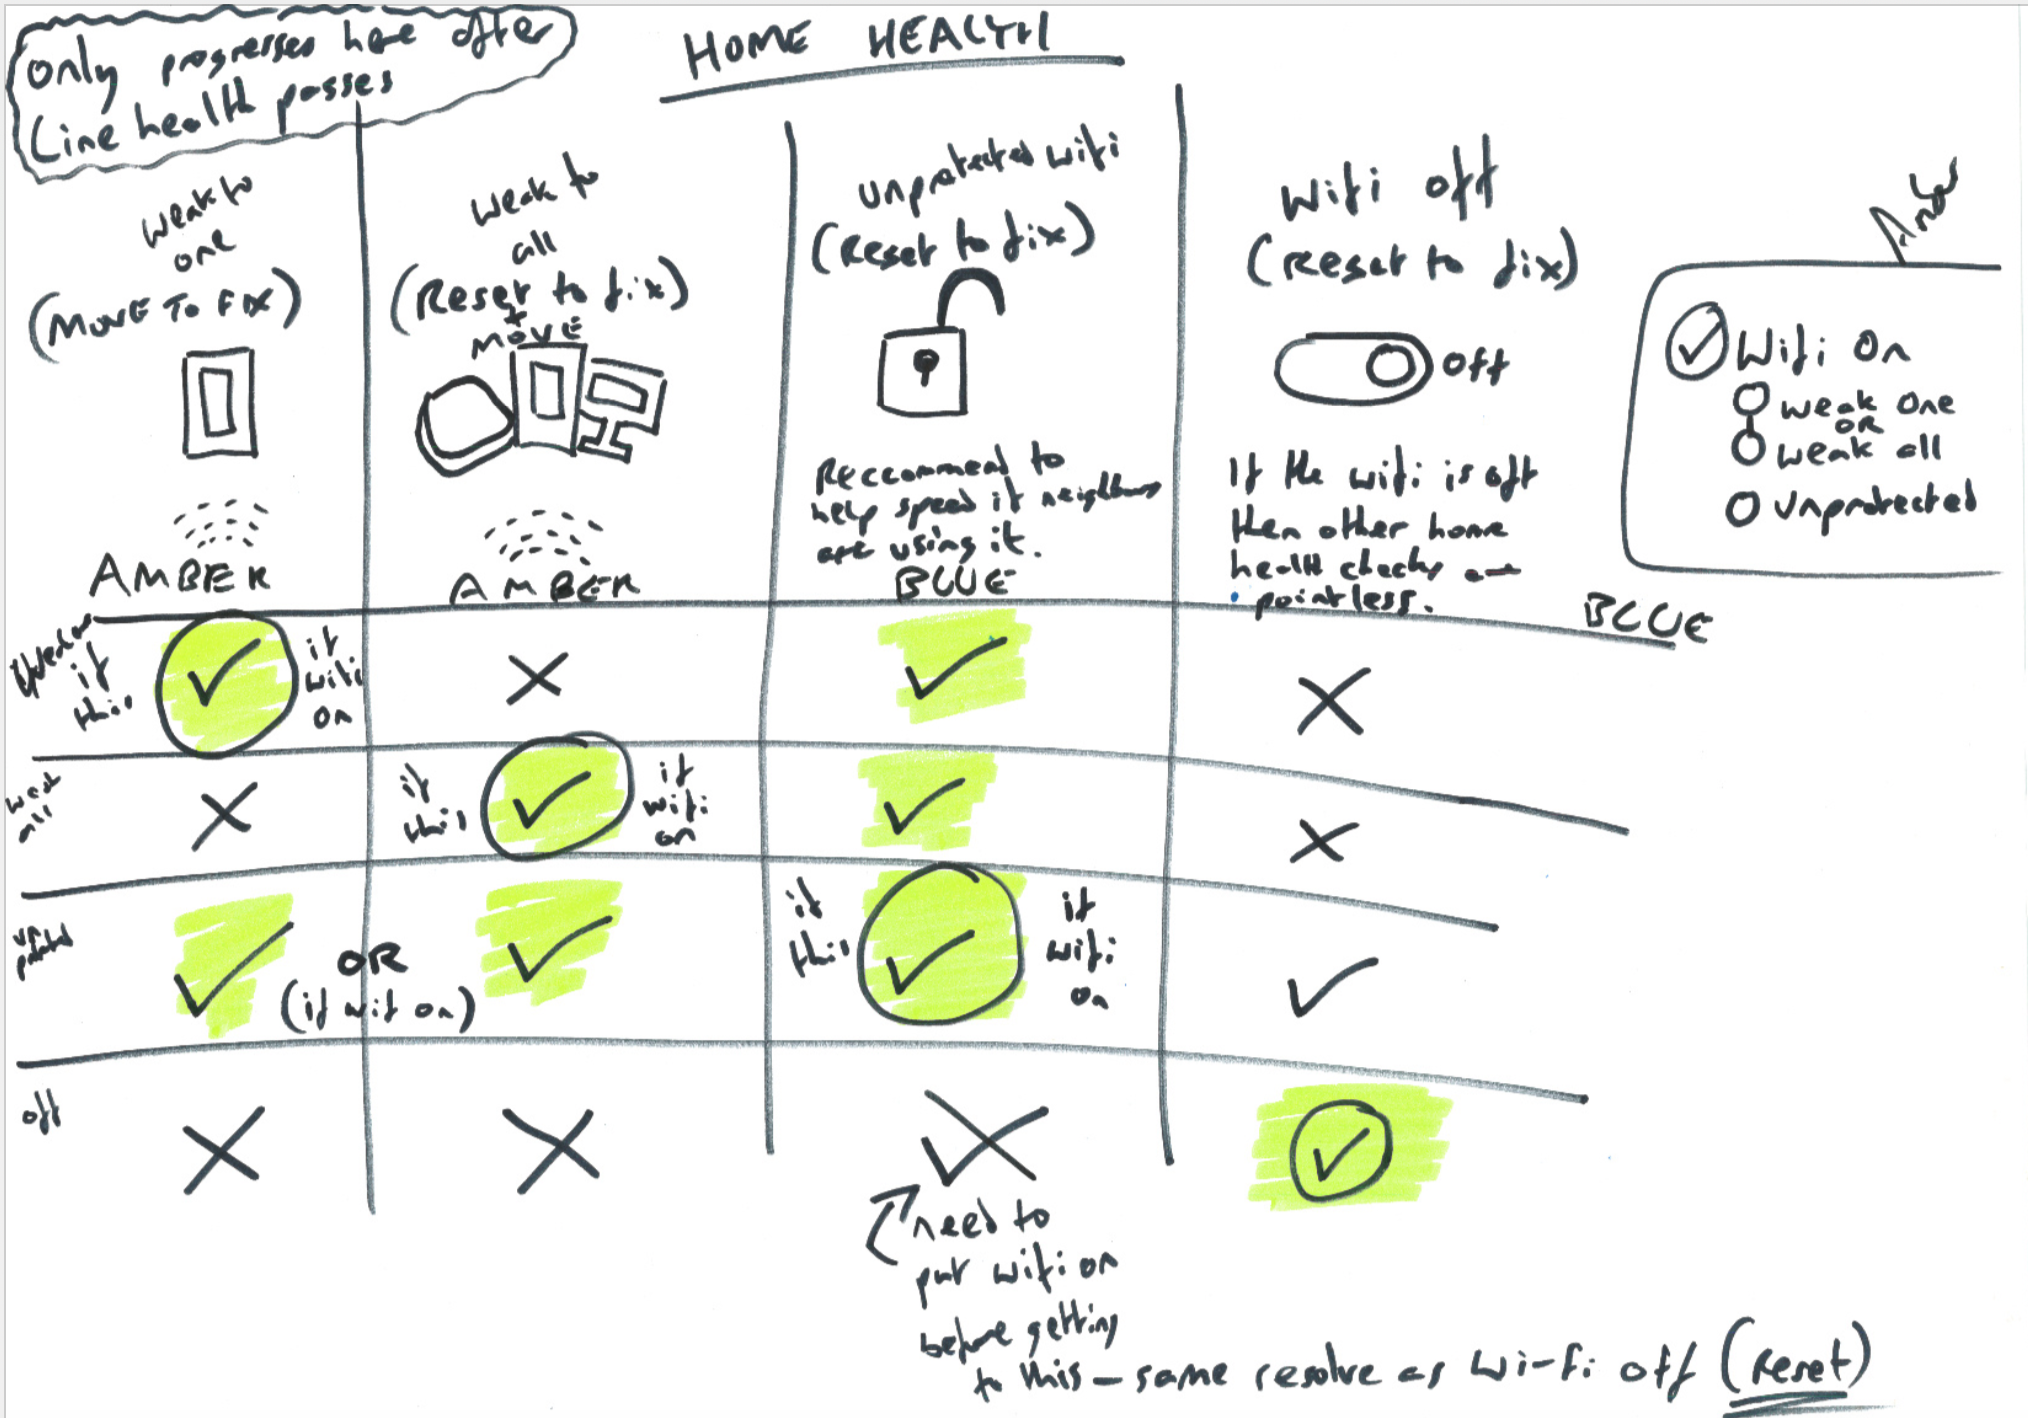 only progresses here after
Line health passes
HOME HEALTH
weak to
one
(MOVE TO FIX)
AMBER
weak to
all
(Reset to fix)
+
MOVE
AMBER
unprotected wifi
(Reset to fix)
Reccommend to
help speed if neighbours
are using it.
BLUE
Wifi off
(reset to fix)
off
If the wifi is off
then other home
health checks are
pointless.
BLUE
Wifi on
weak one
OR
weak all
unprotected
if
this
if
wifi
on
weak
all
if
this
if
wifi
on
OR
(if wifi on)
if
this
if
wifi
on
off
need to
put wifi on
before getting
to this – same resolve as Wi-Fi off (reset)